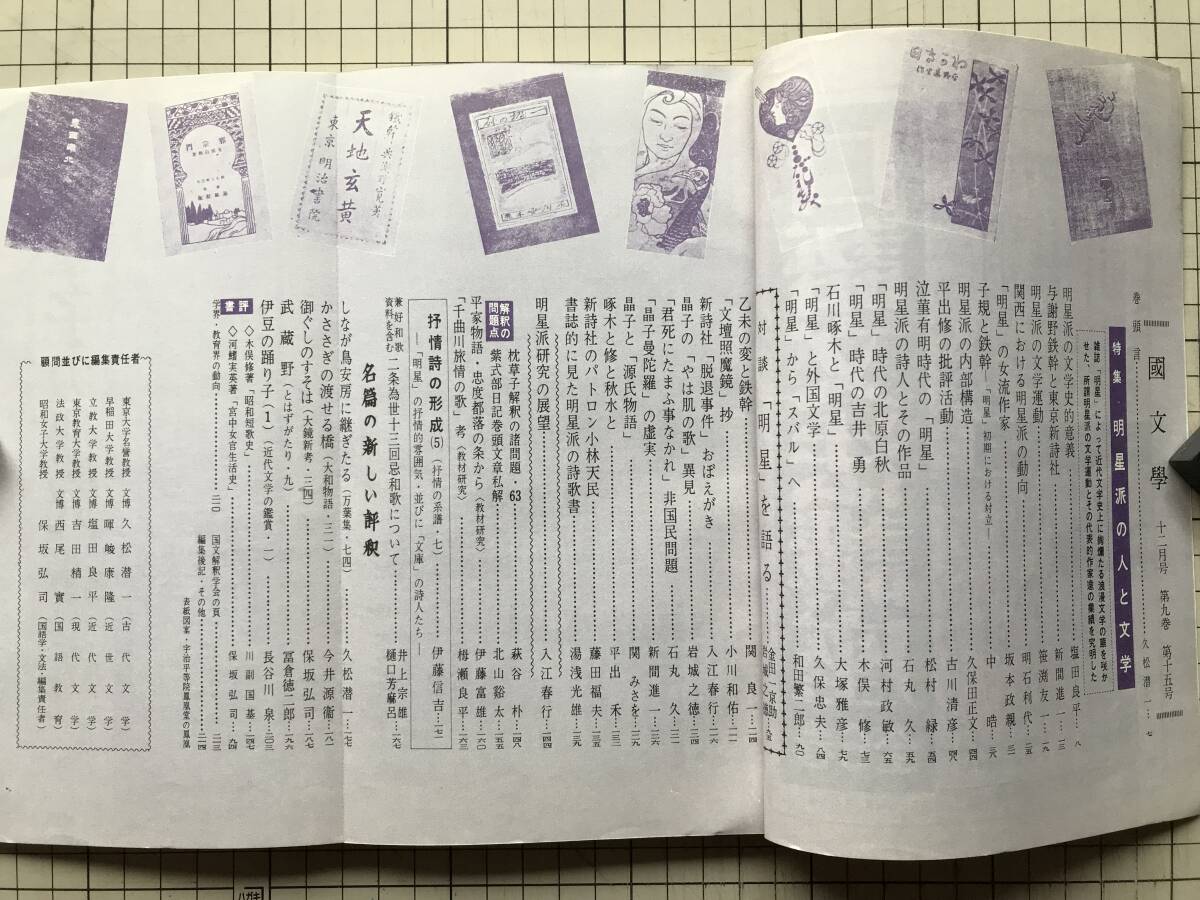 國文學 十二月号 第九巻 第十五号
巻頭言 久松潜一 七
特集・明星派の人と文学
雑誌「明星」によって近代文学史上に絢爛たる浪漫文学の華を咲か
せた、所謂明星派の文学運動とその代表的作家達の業績を究明した
明星派の文学史的意義 塩田良平 八
与謝野鉄幹と東京新詩社 新間進一 一三
明星派の文学運動 笹淵友一 一九
関西における明星派の動向 明石利代 二五
「明星」の女流作家 坂本政親 三一
子規と鉄幹―「明星」初期における対立― 中晧 三八
明星派の内部構造 久保田正文 四四
平出修の批評活動 古川清彦 四八
泣菫有明時代の「明星」 松村緑 五四
明星派の詩人とその作品 石丸久 五九
「明星」時代の北原白秋 河村政敏 六五
「明星」時代の吉井勇 木俣修 七三
石川啄木と「明星」 大塚雅彦 七九
「明星」と外国文学 久保忠夫 八四
「明星」から「スバル」へ 和田繁二郎 九〇
対談「明星」を語る 金田一京助 岩城之徳
乙未の変と鉄幹 関良一 一二四
「文壇照魔鏡」抄 小川和佑 一一四
新詩社「脱退事件」おぼえがき 入江春行 一〇四
晶子の「やは肌の歌」異見 岩城之徳 一二四
「君死にたまふ事なかれ」非国民問題 石丸久 一二一
「晶子曼陀羅」の虚実 新間進一 一二一
晶子と「源氏物語」 関みさを 一二八
啄木と修と秋水と 平出禾 一三二
新詩社のパトロン小林天民 藤田福夫 一三五
書誌的に見た明星派の詩歌書 湯浅光雄 一三九
明星派研究の展望 入江春行 一四四
解釈の問題点
枕草子解釈の諸問題・63 萩谷朴 一四八
紫式部日記巻頭文章私解 北山谿太 一五五
平家物語・忠度都落の条から(教材研究) 伊藤富雄 一六〇
「千曲川旅情の歌」考(教材研究) 栂瀬良平 一六三
抒情詩の形成(5)(抒情の系譜・七) 伊藤信吉 一七一
―「明星」の抒情的雰囲気・並びに「文庫」の詩人たち―
兼好和歌資料を含む 二条為世十三回忌和歌について 井上宗雄 樋口芳麻呂 一六七
名篇の新しい評釈
しなが鳥安房に継ぎたる(万葉集・七四) 久松潜一 一七七
かささぎの渡せる橋(大和物語・三二) 今井源衞 一八一
御ぐしのすそは(大鏡新考・三四) 保坂弘司 一八八
武蔵野(とはずがたり・九) 冨倉徳二郎 一九八
伊豆の踊り子(1)(近代文学の鑑賞・一) 長谷川泉 二〇三
書評
◇木俣修著「昭和短歌史」 川副国基 一四七
◇河鰭実英著「宮中女官生活史」 保坂弘司 一九四
学界・教育界の動向 二一〇
国文解釈学会の頁 二一三
編集後記・その他 二一四
表紙図案・宇治平等院鳳凰堂の鳳凰
顧問並びに編集責任者
東京大学名誉教授 文博 久松潜一(古代文学)
早稲田大学教授 文博 暉峻康隆(近世文学)
立教大学教授 文博 塩田良平(近代文学)
東京教育大学教授 文博 吉田精一(現代文学)
法政大学教授 文博 西尾實(国語教育)
昭和女子大学教授 保坂弘司(国語学・文法・編集責任者)
鉄幹 与謝野寛著
天地玄黄
東京 明治書院
邪宗門
ハガキ